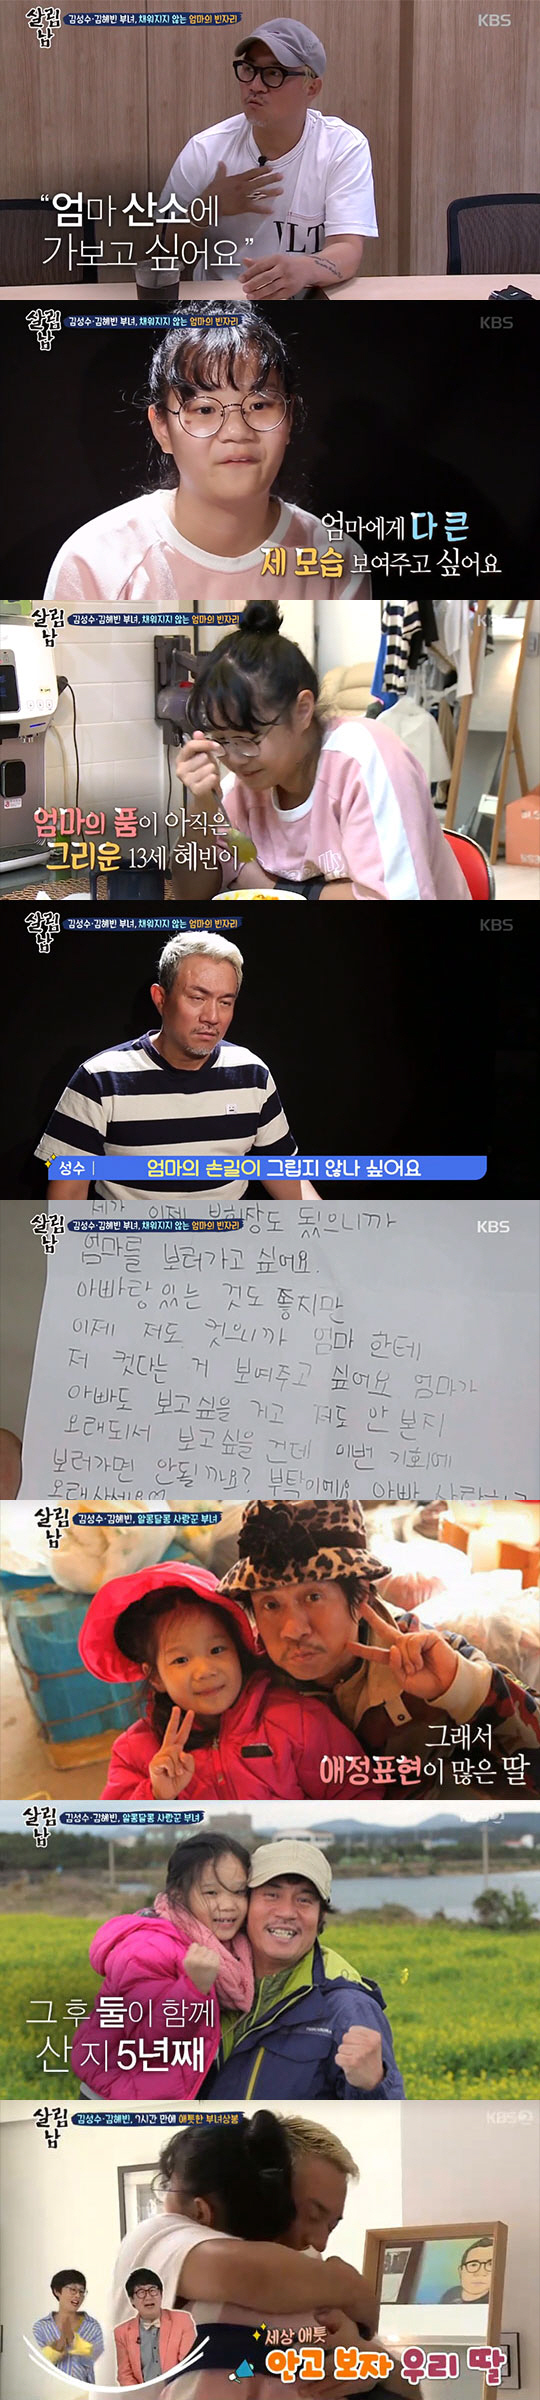 살림남
김성수·김혜빈 부녀, 채워지지 않는 엄마의 빈자리
KBS
“엄마 산소에
가보고 싶어요”
살림남
김성수·김혜빈 부녀, 채워지지 않는 엄마의 빈자리
KBS
엄마에게 다 큰
제 모습 보여주고 싶어요
살림남
김성수·김혜빈 부녀, 채워지지 않는 엄마의 빈자리
엄마의 품이 아직은
그리운 13세 혜빈이
살림남
김성수·김혜빈 부녀, 채워지지 않는 엄마의 빈자리
KBS
성수 | 엄마의 손길이 그립지 않나 싶어요
살림남
김성수·김혜빈 부녀, 채워지지 않는 엄마의 빈자리
KBS
제가 이제 부회장도 됬으니까
엄마를 보러가고 싶어요.
아빠랑 있는 것도 좋지만
이제 저도 컷으니까 엄마 한테
저 컷다는 거 보여주고 싶어요 엄마가
아빠도 보고싶을 거고 저도 안 본지
오래되서 보고싶을 건데 이번 기회에
보러가면 안될까요? 부탁이에요 아빠
살림남
김성수·김혜빈, 알콩달콩 사랑꾼 부녀
그래서
애정표현이 많은 딸
살림남
김성수·김혜빈, 알콩달콩 사랑꾼 부녀
그 후 둘이 함께
산 지 5년째
살림남
김성수·김혜빈, 7시간 만에 애틋한 부녀상봉
KBS2
세상 애틋
안고 보자 우리 딸